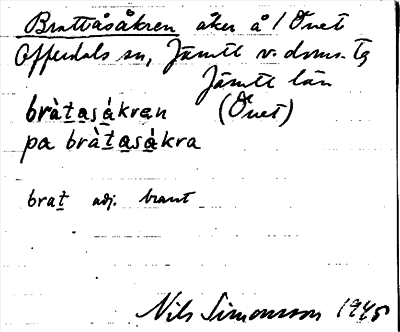 Brattåsåkren åker å 1 Önet
Offerdals sn, Jämtl v. doms. Tg
Jämtl län
bràtasákren (Önet)
pa bràtasákra
brat adj. brant
Nils Simonsson 1945